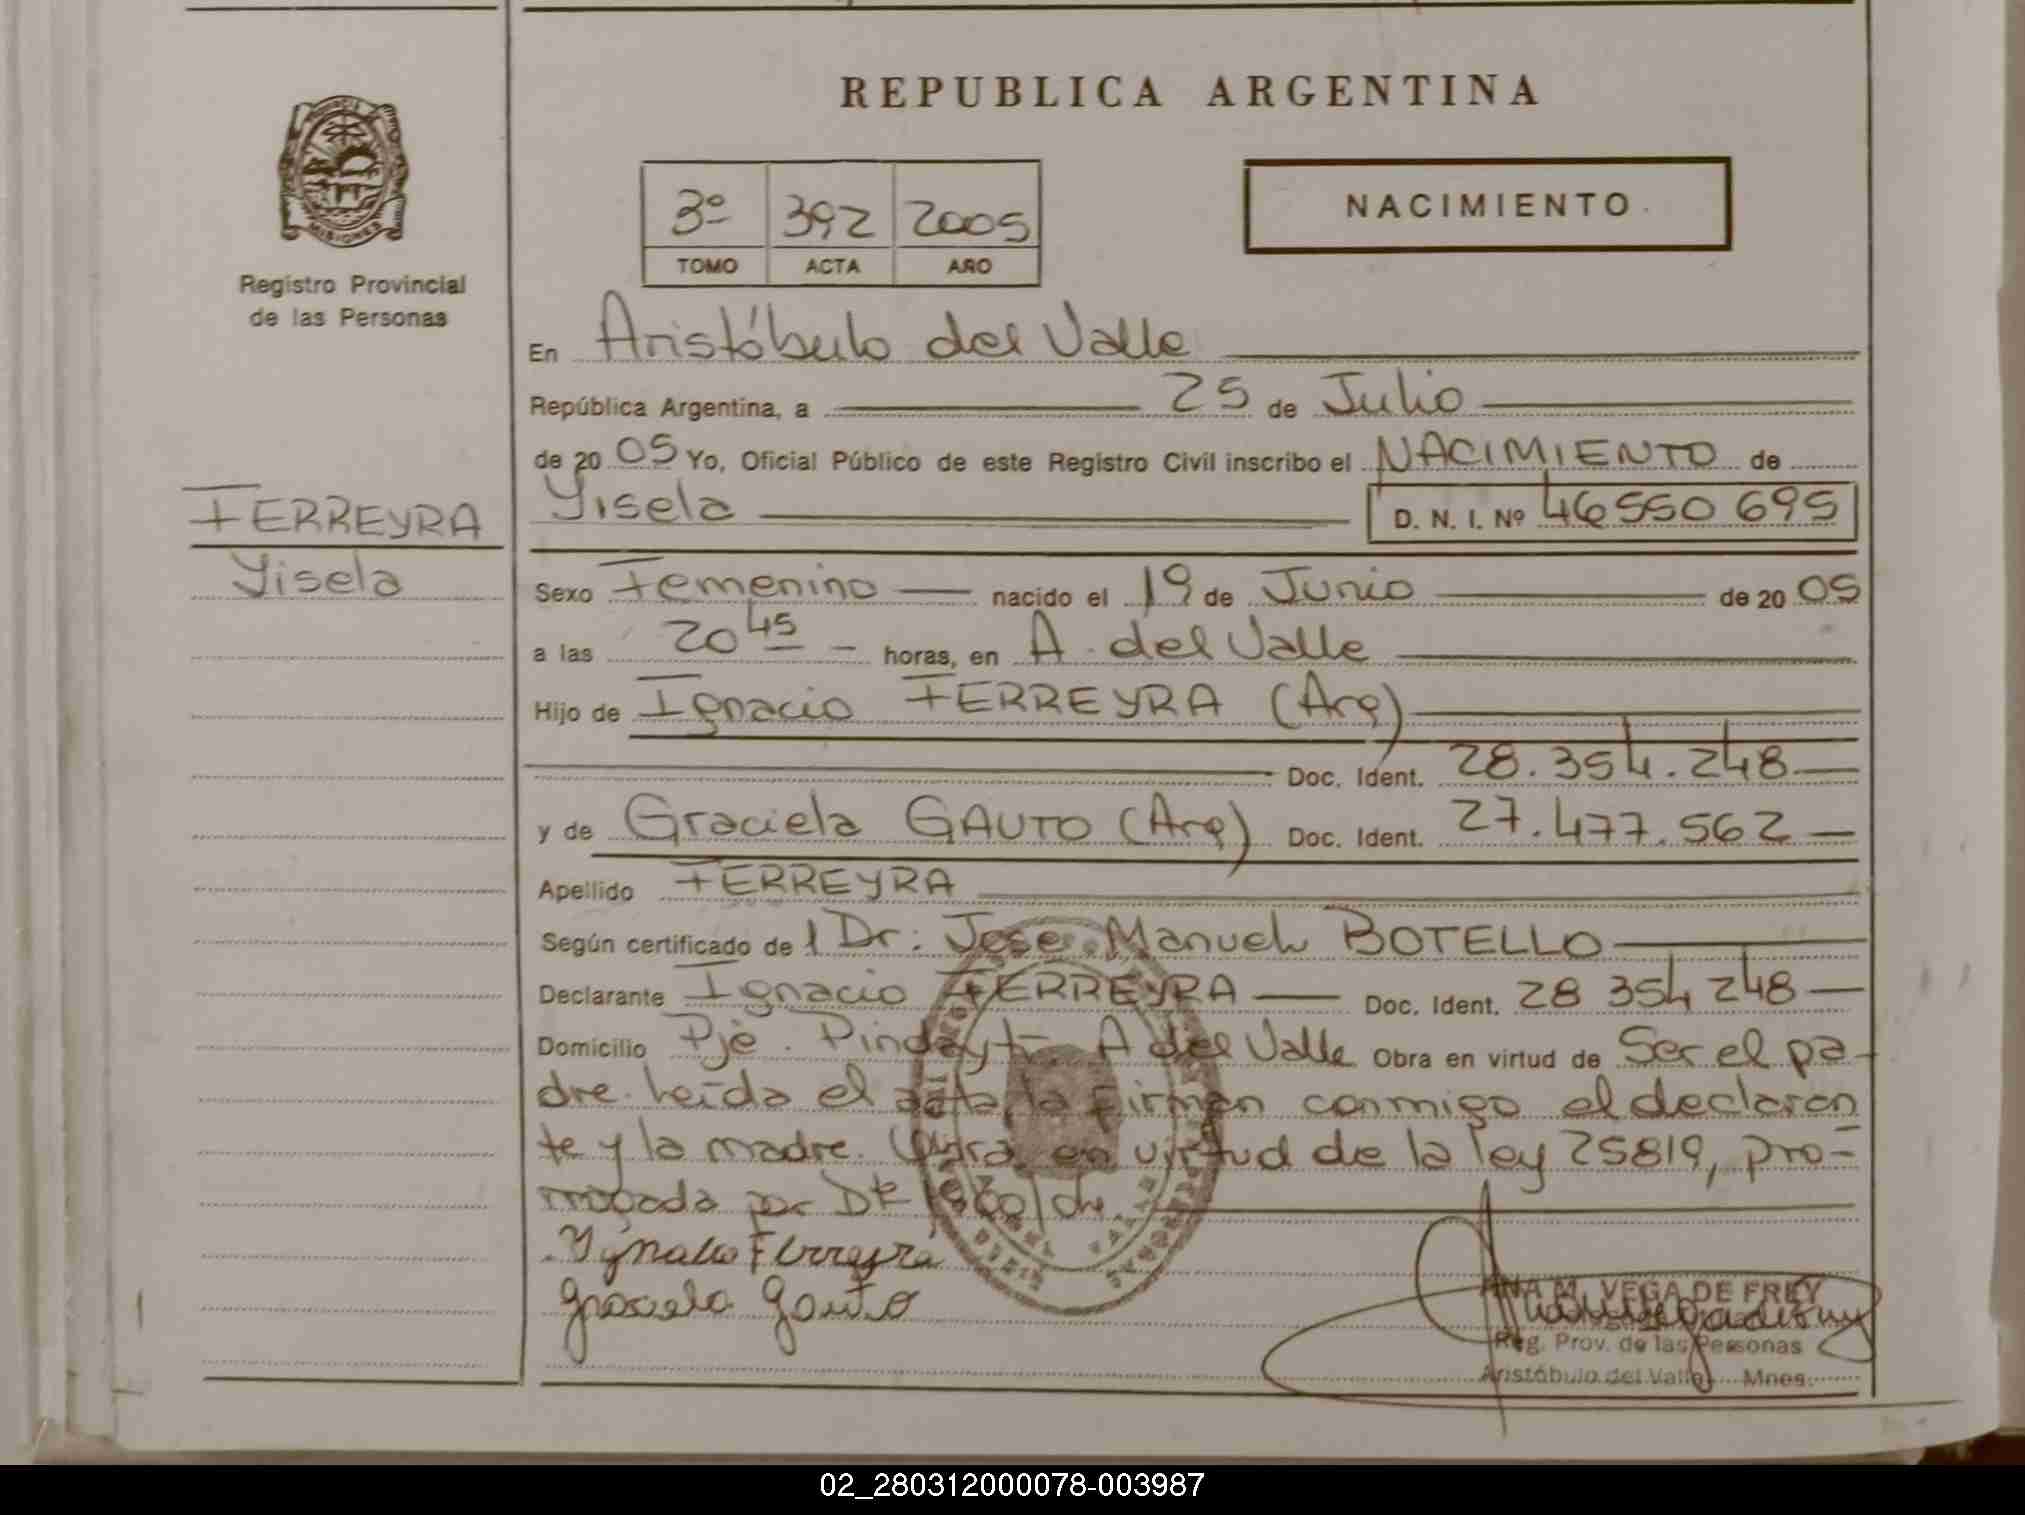 REPUBLICA ARGENTINA
MISIONES
Registro Provincial
de las Personas
3º 392 2005
TOMO ACTA AÑO
NACIMIENTO
En Aristóbulo del Valle
República Argentina, a 25 de Julio
de 20 05 Yo, Oficial Público de este Registro Civil inscribo el NACIMIENTO de
Yisela D. N. I. Nº 46550 695
FERREYRA
Yisela
Sexo Femenino nacido el 19 de Junio de 20 05
a las 20 45 horas, en A. del Valle
Hijo de Ignacio FERREYRA (Arg)
Doc. Ident. 28.354.248
y de Graciela GAUTO (Arg) Doc. Ident. 27.477.562
Apellido FERREYRA
Según certificado de l Dr. Jose Manuel BOTELLO
Declarante Ignacio FERREYRA Doc. Ident. 28 354 248
Domicilio Pje. Pindayti A del Valle Obra en virtud de Ser el pa-
dre. Leída el acta, la firman conmigo el declaran
te y la madre. en virtud de la ley 25819, pro-
rrogada por
Ygnacio Ferreyra
graciela gauto
ANA M. VEGA DE FREY
Reg. Prov. de las Personas
Aristóbulo del Valle Mnes.
02_280312000078-003987